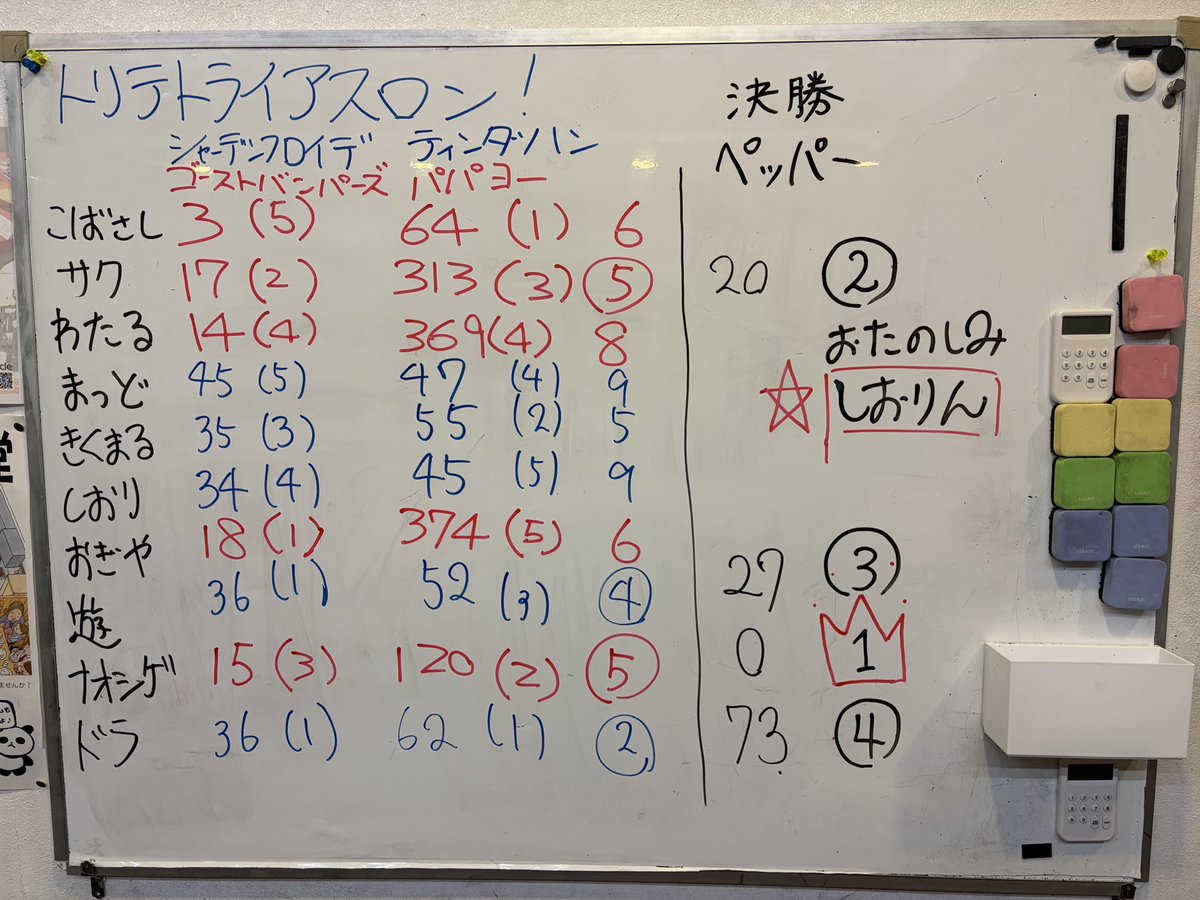 トリテトライアスロン!
シャーデンフロイデ ティンダッハン
ゴーストバンパーズ パパヨー
こばさし 3 (5) 64 (1) 6
サク 17 (2) 313 (3) ⑤
わたる 14 (4) 369 (4) 8
まっど 45 (5) 47 (4) 9
きくまる 35 (3) 55 (2) 5
しおり 34 (4) 45 (5) 9
おぎや 18 (1) 374 (5) 6
遊 36 (1) 52 (3) ④
ナオシゲ 15 (3) 120 (2) ⑤
ドラ 36 (1) 62 (1) ②
決勝
ペッパー
20 ②
おたのしみ
☆ しおりん
27 ③
0 1
73 ④